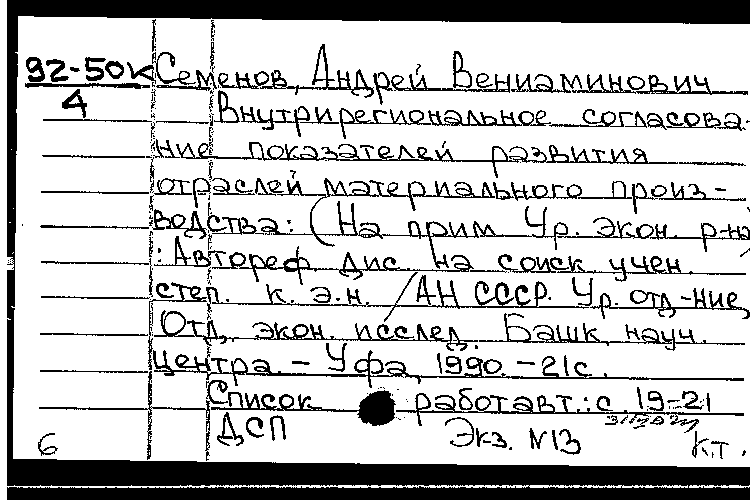 92-50к Семенов, Андрей Вениаминович
4
Внутрирегиональное согласова-
ние показателей развития
отраслей материального произ-
водства: (На прим Ур. экон. р-на
: Автореф дис на соиск учен.
степ. к. э.н. / АН СССР. Ур. отд-ние,
Отд. экон. исслед. Башк. науч.
центра. – Уфа, 1990. – 21 с.
Список работ авт.: с. 19-21
ДСП Экз. N13
6 К.Т.